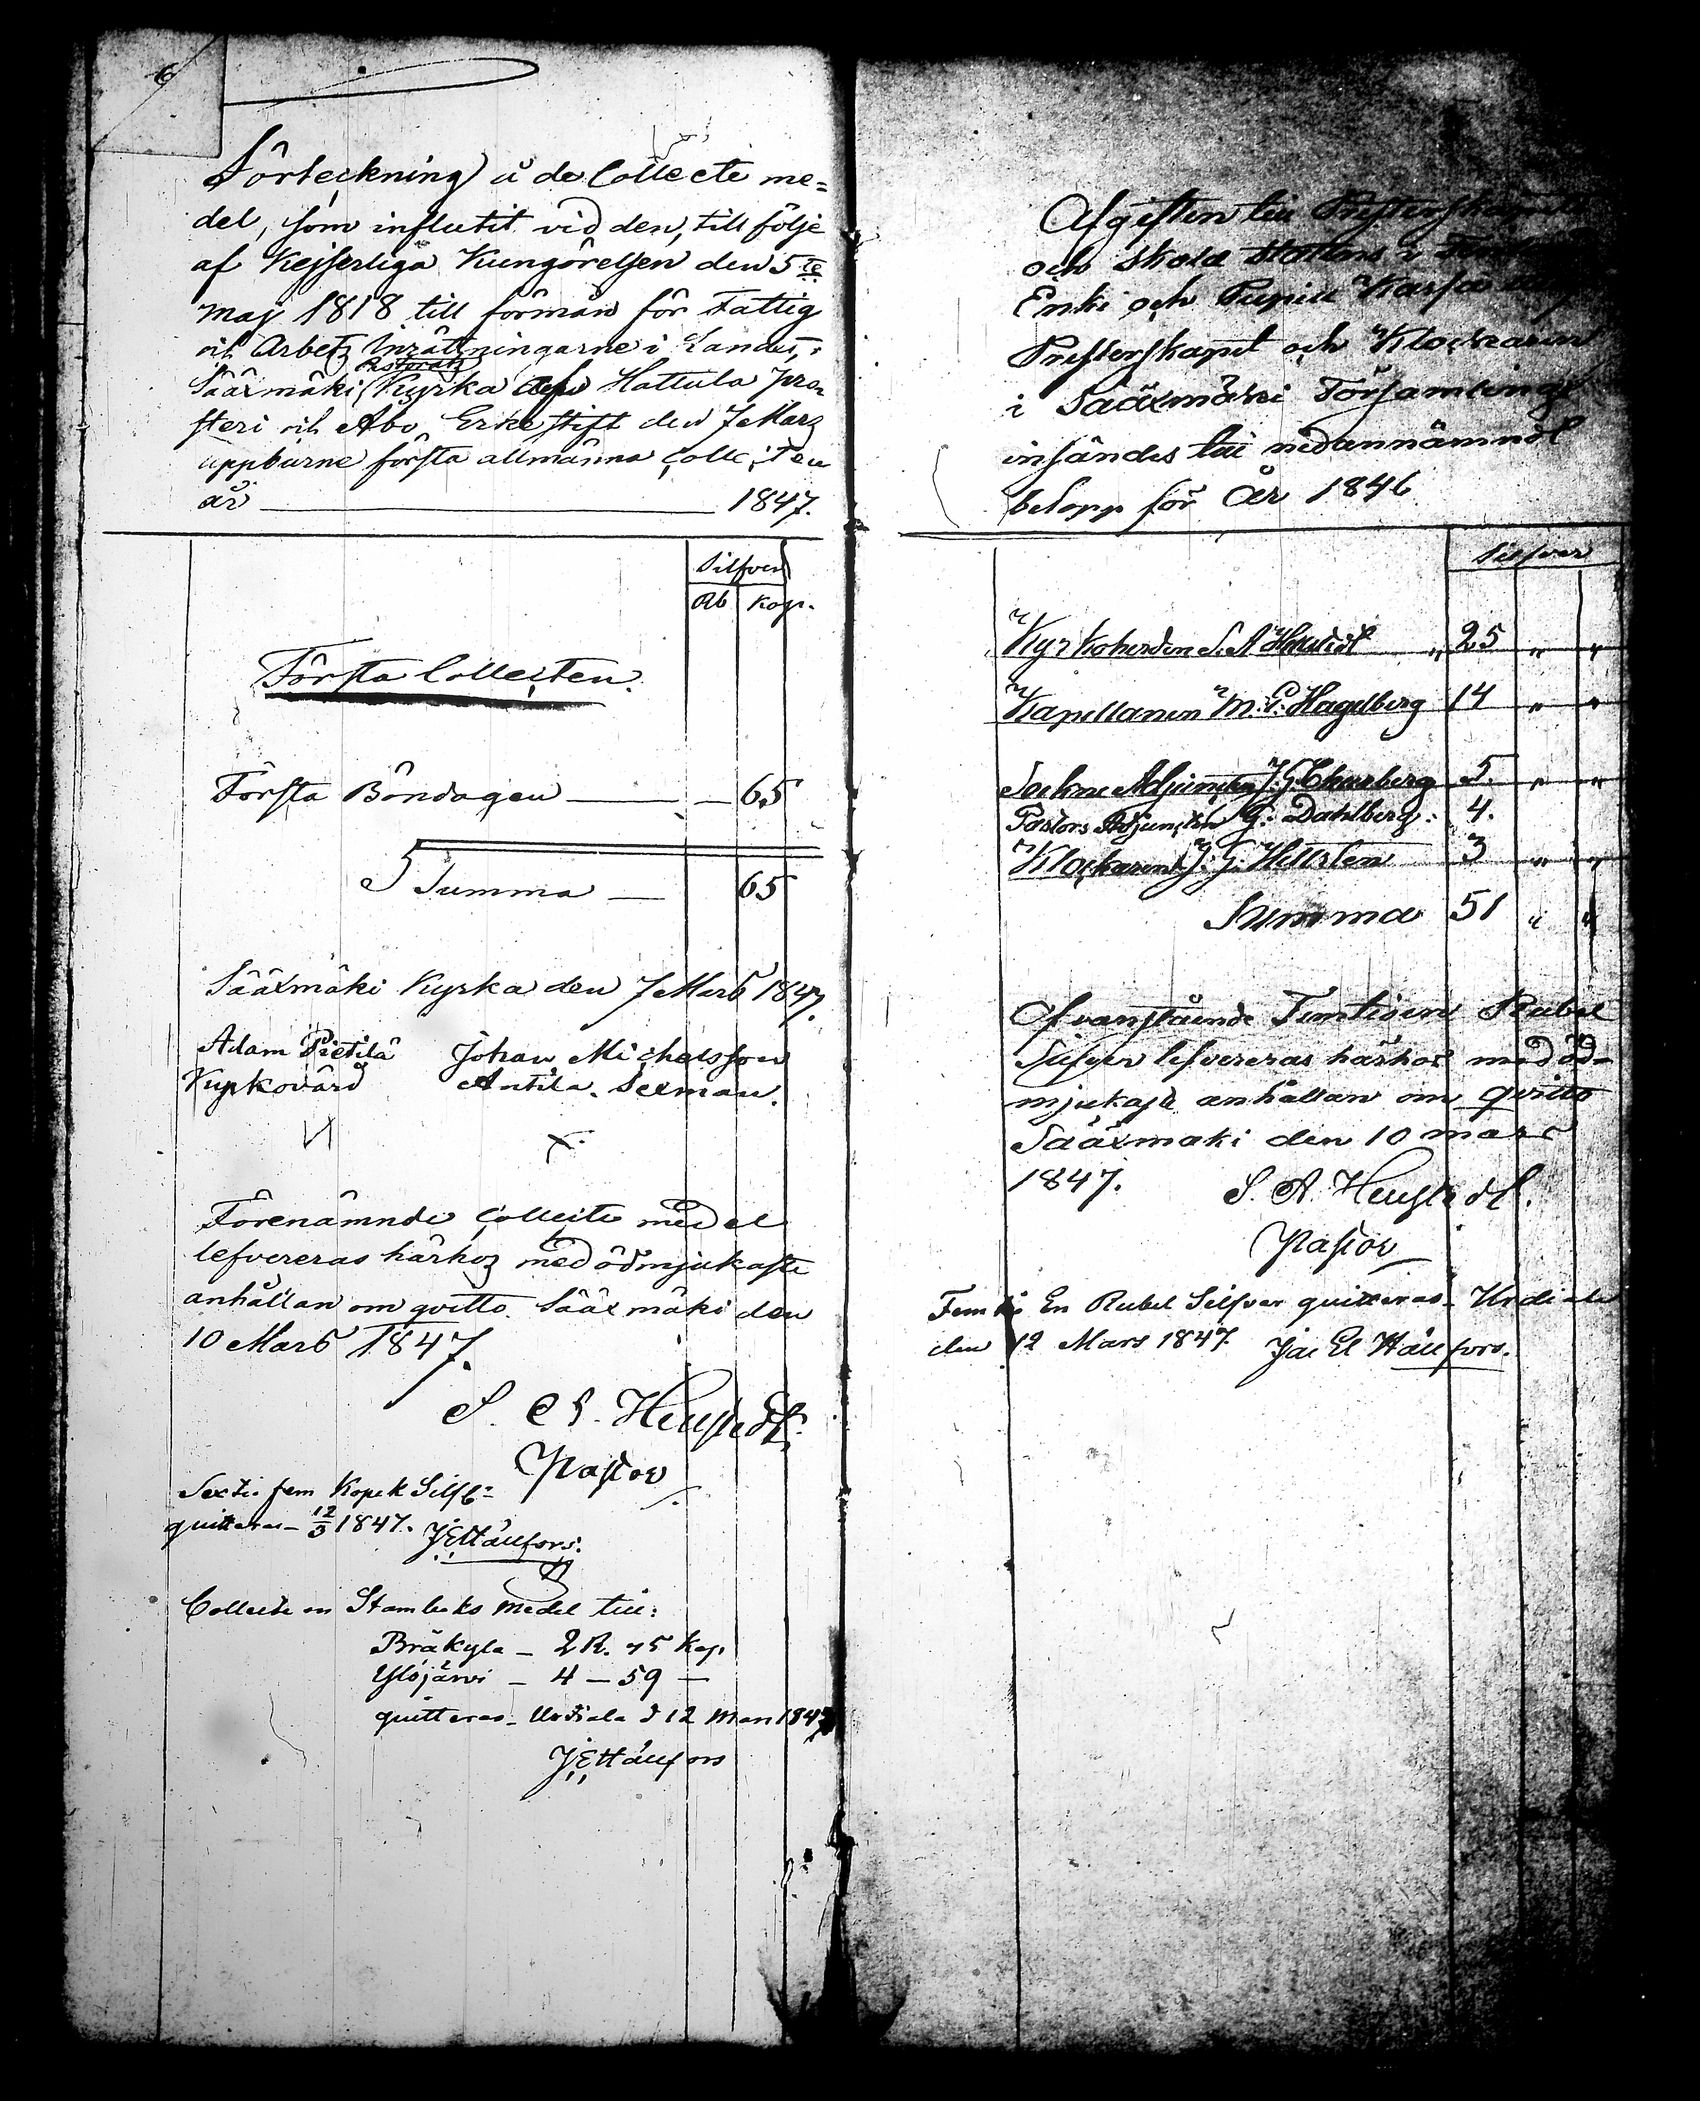 6
Förteckning å de Collecte me=
del, som influtit vid den, till följe
af Kejserliga Kungörelsen den 5te
Maj 1818 till förmån för Fattig
och Arbetz Inrättningarne i Landet,
Pastorats
Sääxmäki Kyrka af Hattula pro
steri och Åbo Erke stift den 7 Marz
uppburne första allmänna Collecten
år 1847.
Silfver
Rb Kop.
Första Collecten.
Första Böndagen — 65
Summa — 65
Sääxmäki Kyrka den 7 Mars 1847.
Adam Pietilä Johan Michelsson
Kyrkovärd Antila. Sexman.
Förenämnde Collecte medel
lefvereras härhoz med ödmjukaste
anhållan om qvitto. Sääxmäki den
10 Mars 1847.
S. A. Heurstedt.
Pastor
Sextio fem Kopek Silfv=
quitteras 12/3 1847. JEHällfors.
Collecte on Stamboks medel till:
Bräkyla — 2 R. 75 Kop.
Ylöjärvi — 4 — 59 —
quitteras. Urdiala d 12 Mars 1847
JEHällfors
Afgiften till Presterskapets
och Skole Statens i
Enke och Pupill Kassa
Presterskapet och Klockaren
i Sääxmäki Församling
insändes till nedannämndt
belopp för År 1846
Silfver
Kyrkoherden S. A. " 25 " "
Kapellanen M. C. Hagelberg 14 " "
Sockne Adjuncten J. G. Churberg 5. " "
Pastors Adjuncten G. Dahlberg. 4.
Klockaren J. G. Hellsten 3 " "
Summa 51 " "
Ofvanstående Femtioen Rubel
Silfver lefvereras härhos med öd-
mjukaste anhållan om qvitto
Sääxmäki den 10 Mars
1847. S. A. Heurstedt.
Pastor
Femtio En Rubel Silfver quitteras. Urdiala
den 12 Mars 1847. Jac El Hällfors.